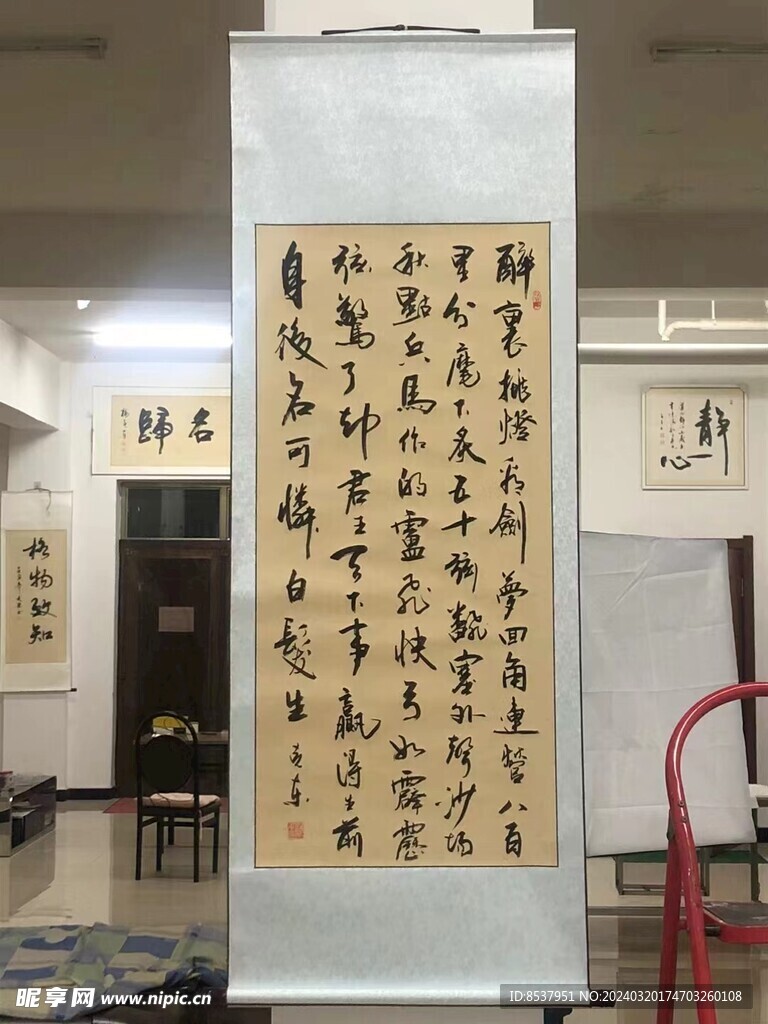 醉裏挑燈看劍夢回角連營八百
里分麾下炙五十弦翻塞外聲沙場
秋點兵馬作的盧飛快弓如霹靂
弦驚了却君王天下事贏得生前
身後名可憐白髮生
名歸
格物致知
靜心
昵享网 www.nipic.cn
ID:8537951 NO:20240320174703260108